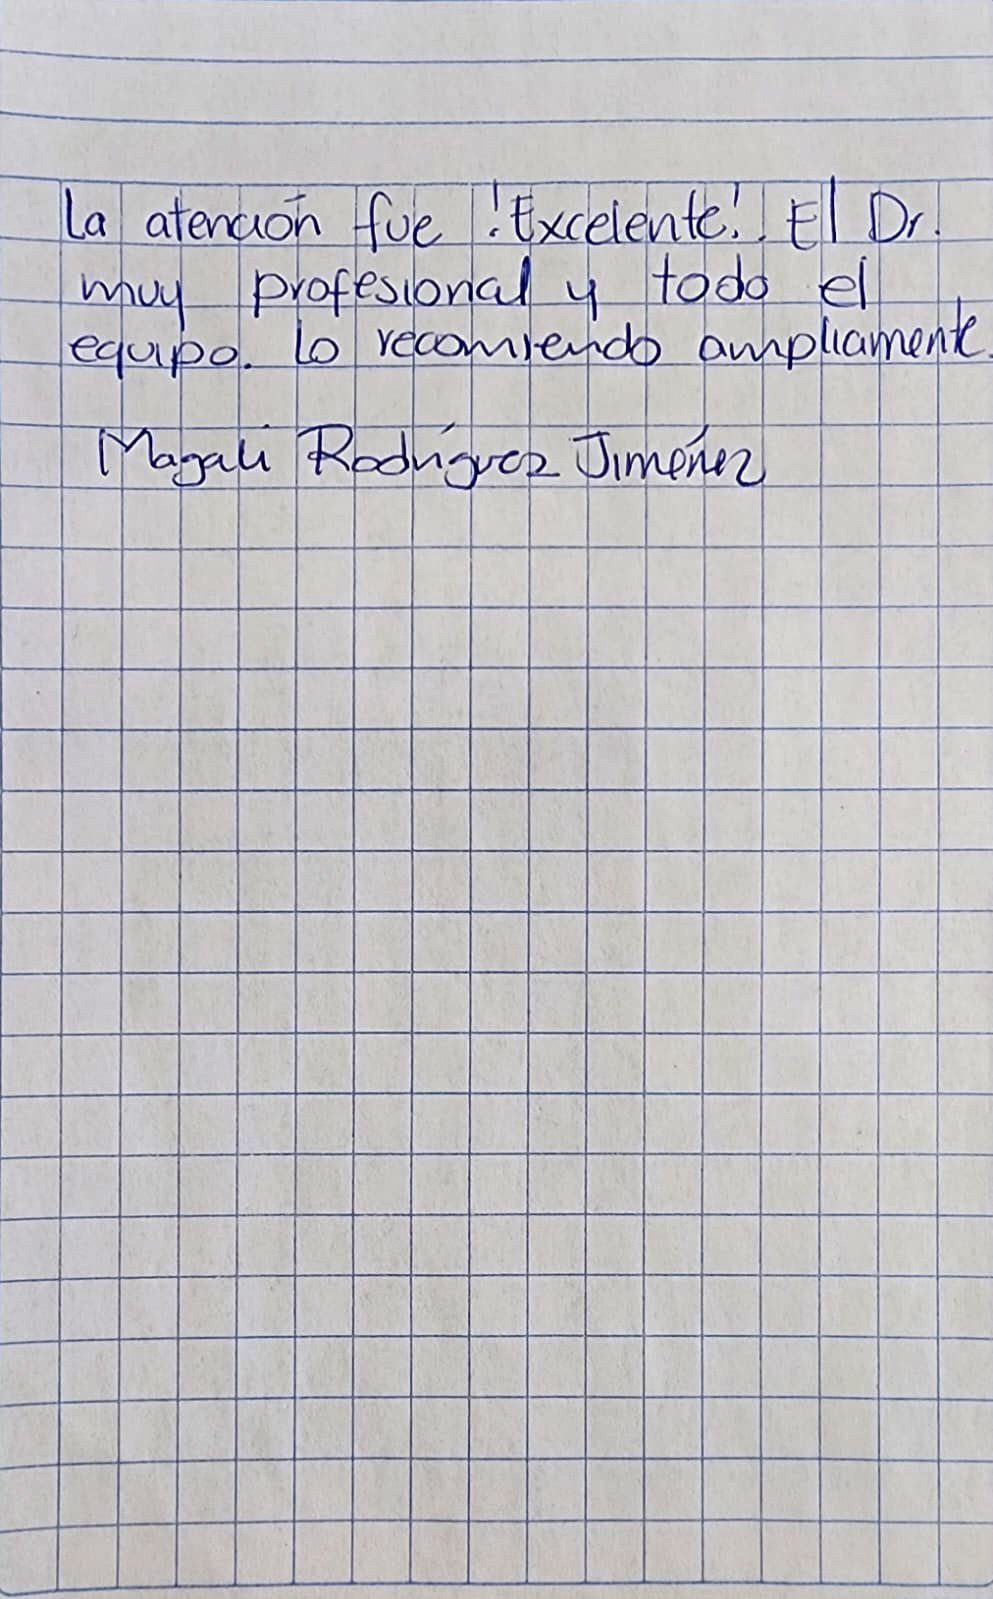 La atención fue !Excelente!. El Dr.
muy profesional y todo el
equipo. Lo recomiendo ampliamente.
Magali Rodríguez Jiménez